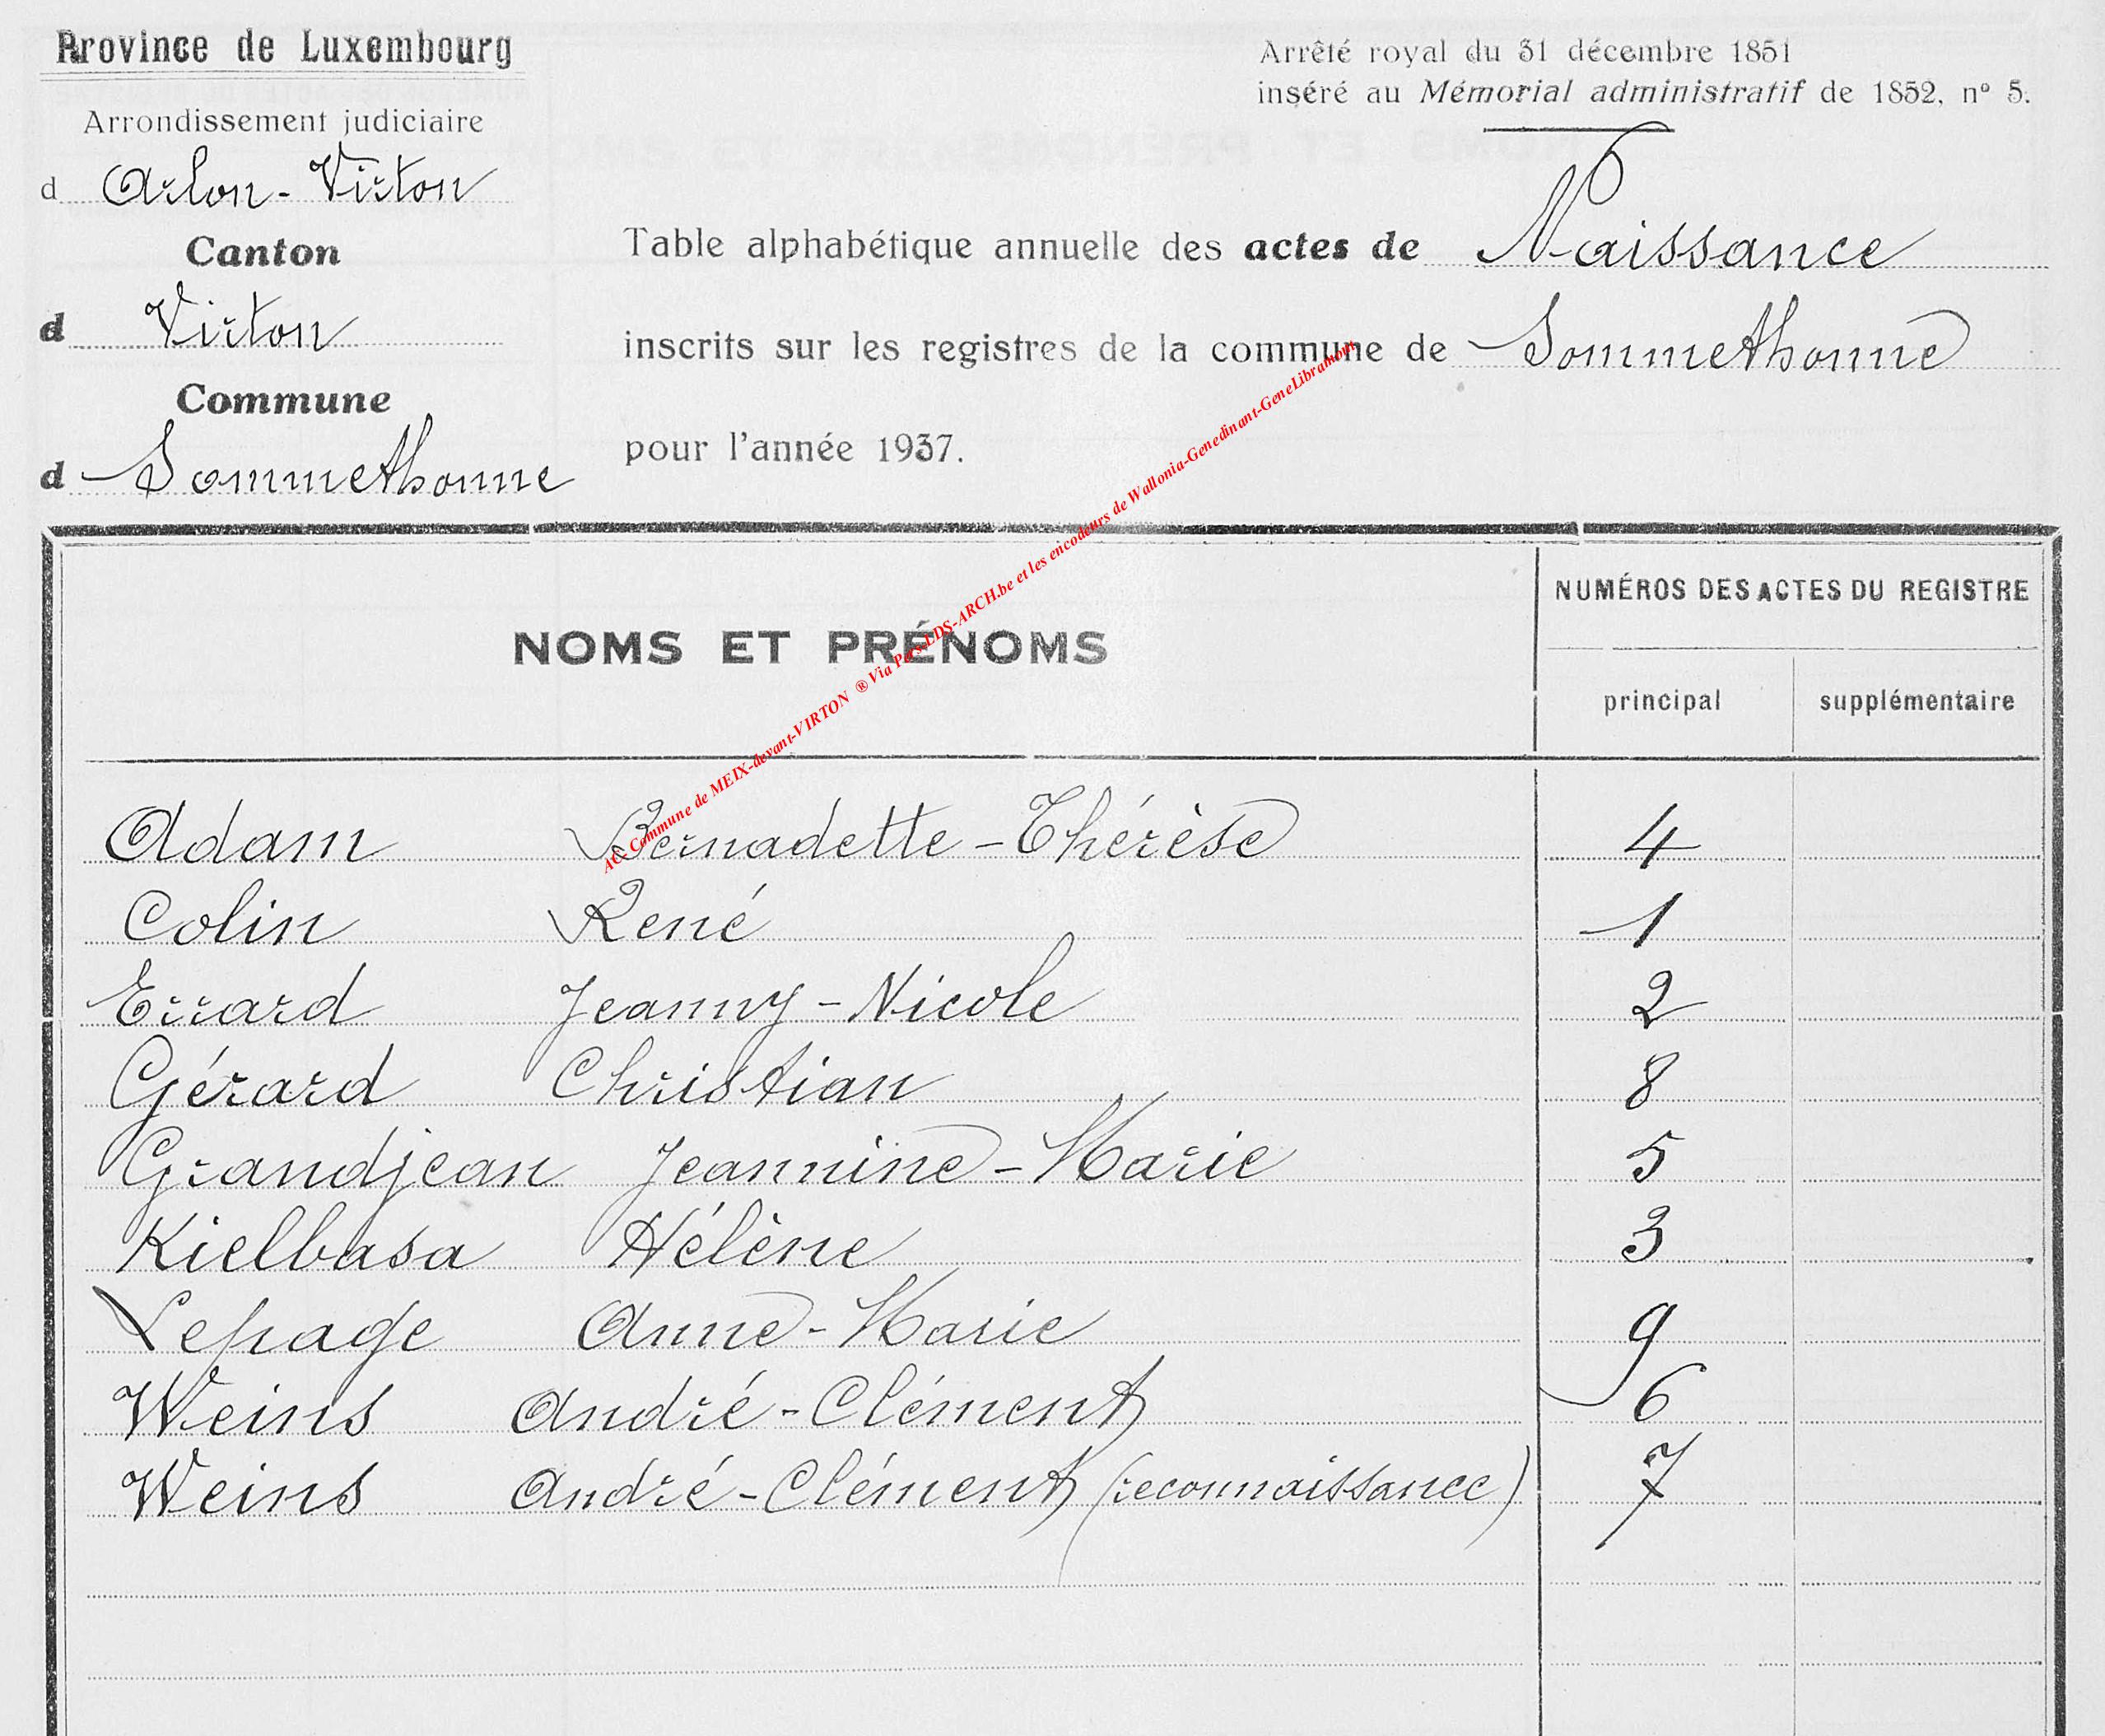 Province de Luxembourg
Arrondissement judiciaire
d Arlon-Virton
Canton
d Virton
Commune
d Sommethonne
Arrêté royal du 31 décembre 1851
inséré au Mémorial administratif de 1852, nº 5.
Table alphabétique annuelle des actes de Naissance
inscrits sur les registres de la commune de Sommethonne
pour l'année 1937.
NOMS ET PRÉNOMS
NUMÉROS DES ACTES DU REGISTRE
principal supplémentaire
Adam Bernadette-Thérèse 4
Colin René 1
Errard Jeanny-Nicole 2
Gérard Christian 8
Grandjean Jeannine-Marie 5
Kielbasa Hélène 3
Lepage Anne-Marie 9
Weins André-Clément 6
Weins André-Clément (reconnaissance) 7
Commune de MEIX-devant-VIRTON ® Via Pers-LDS-ARCH.be et les encodeurs de Wallonia-Genedinant-GeneLibramont